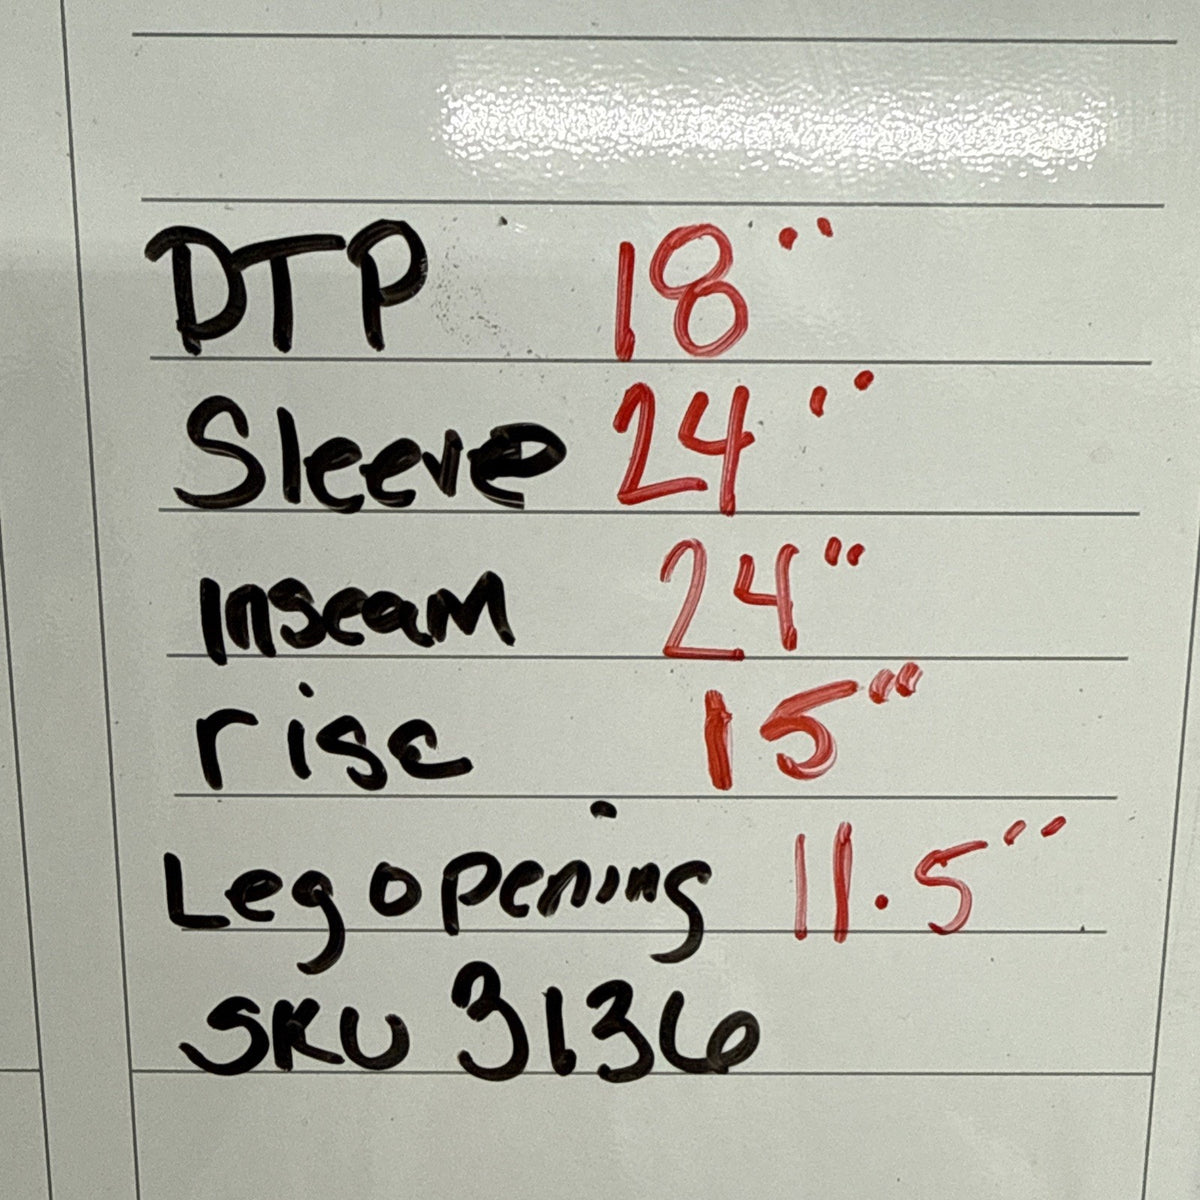 DTP 18"
Sleeve 24"
Inseam 24"
rise 15"
Leg opening 11.5"
SKU 3136